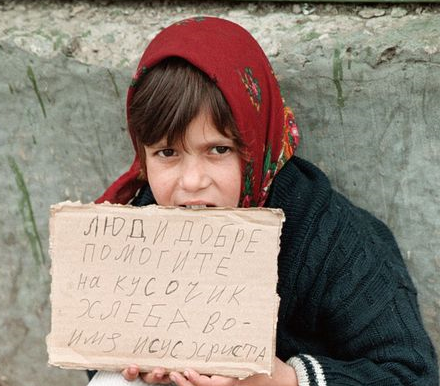 ЛЮДИ ДОБРЕ
ПОМОГИТЕ
на КУСОЧИК
ХЛЕБА ВО-
ИМЯ ИСУСХРИСТА